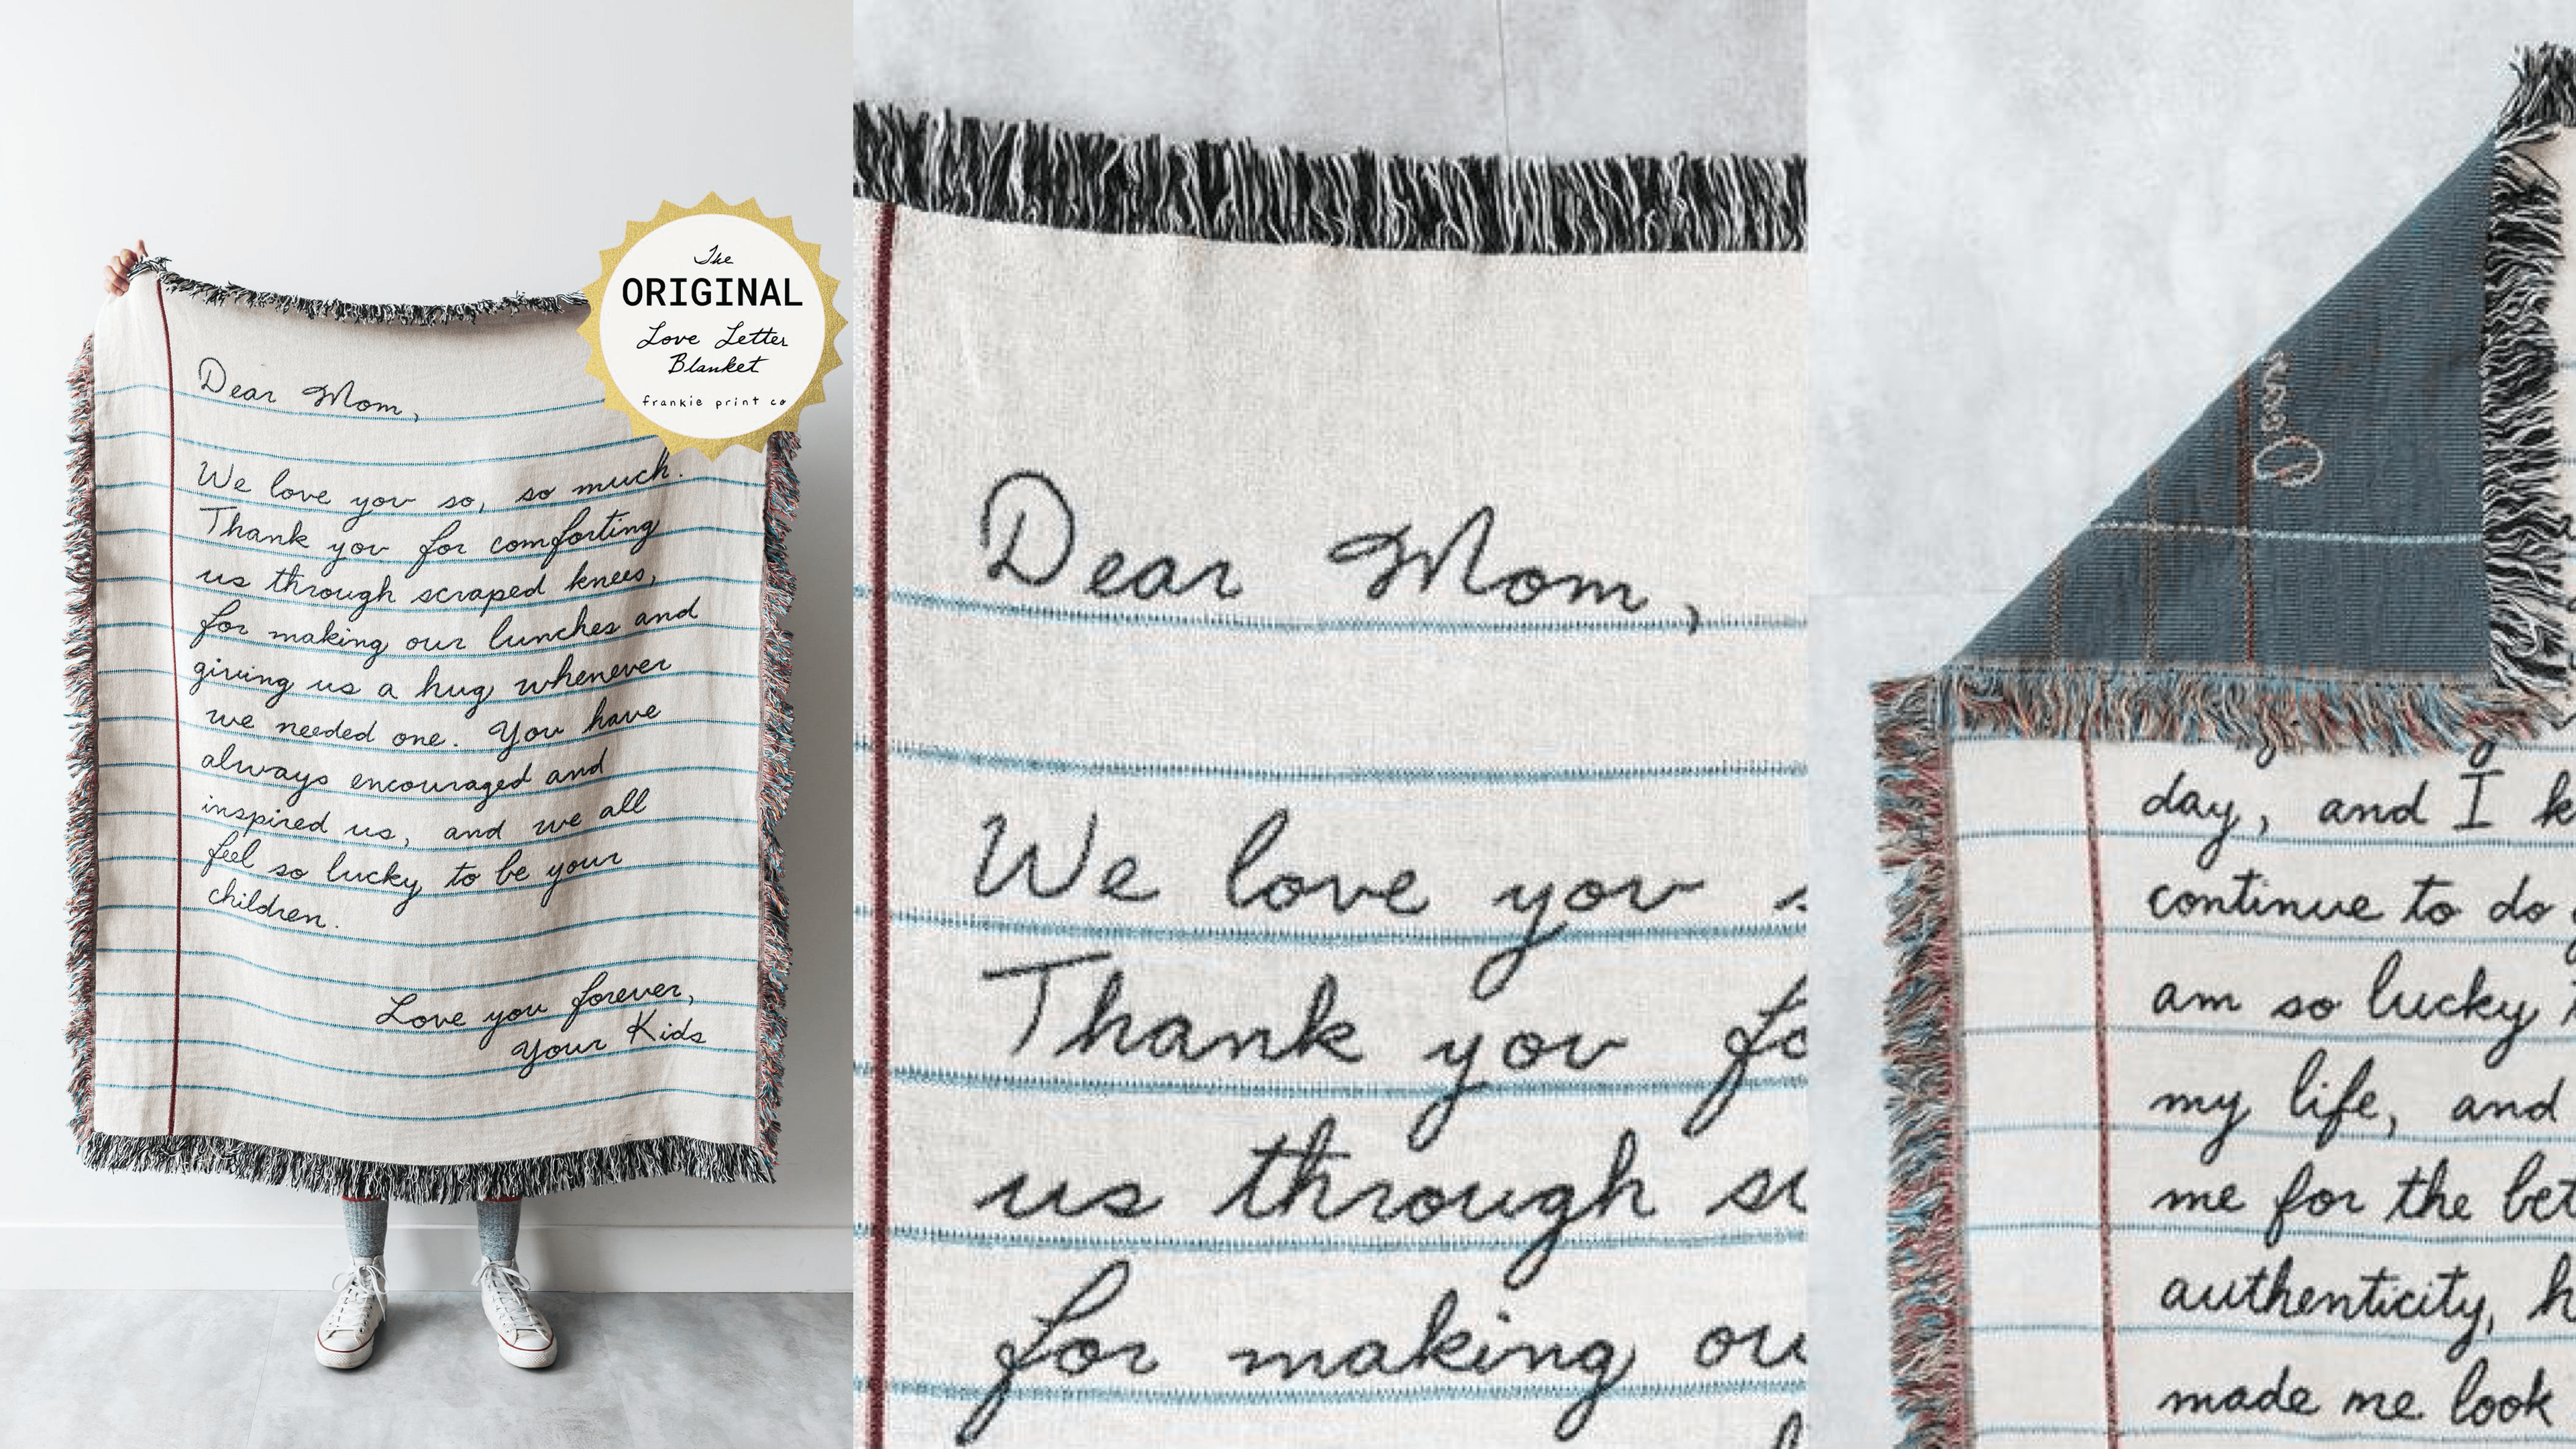 The
ORIGINAL
Love Letter
Blanket
frankie print co
Dear Mom,
We love you so, so much.
Thank you for comforting
us through scraped knees,
for making our lunches and
giving us a hug whenever
we needed one. You have
always encouraged and
inspired us, and we all
feel so lucky to be your
children.
Love you forever,
Your Kids
Dear Mom,
We love you
Thank you fo
us through
for making ou
Dear
day, and I k
continue to do
am so lucky
my life, and
me for the bet
authenticity, h
made me look